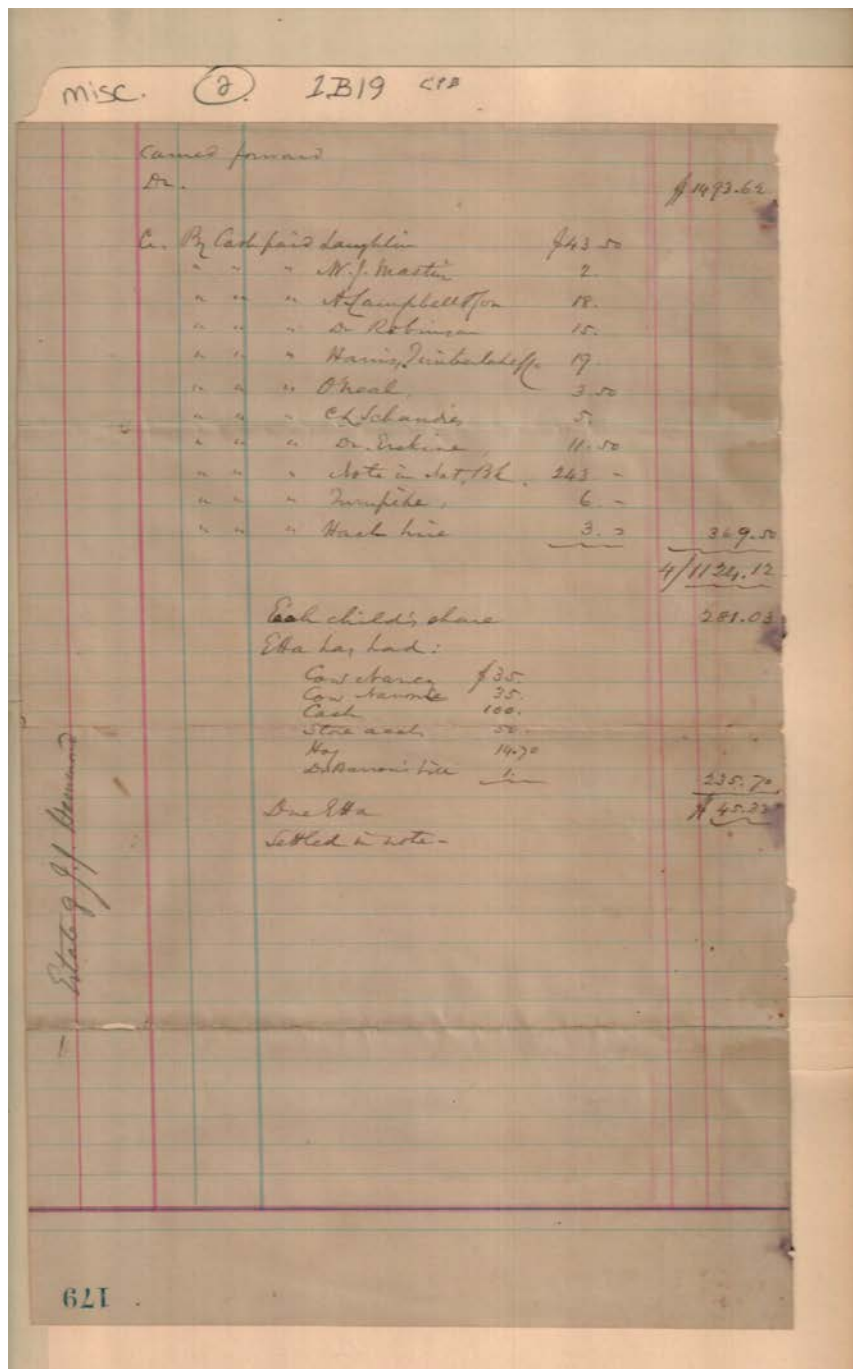 misc. 2. I.B19 CPB
Carried forward
Dr. $1493.62
Cr. By Cash paid Laughlin $43.50
" " " W. J. Mastin 2.
" " " A. Campbell & Son 18.
" " " Dr Robinson 15.
" " " Harris, Timberlake & Co. 19.
" " " O'Neal, 3.50
" " " C L 5.
" " " Dr. Erskine, 11.50
" " " Note in Nat. Bk. 243 -
" " " Turnpike, 6. -
" " " Hack hire 3. - 369.50
4/1124.12
Each child's share 281.03
Etta has had:
Cow Nancy $35.
Cow 35.
Cash 100.
Store acct. 50.
Hog 14.70
Dr 's bill 1. 235.70
Due Etta $45.33
Settled in note-
Estate of J. J.
179